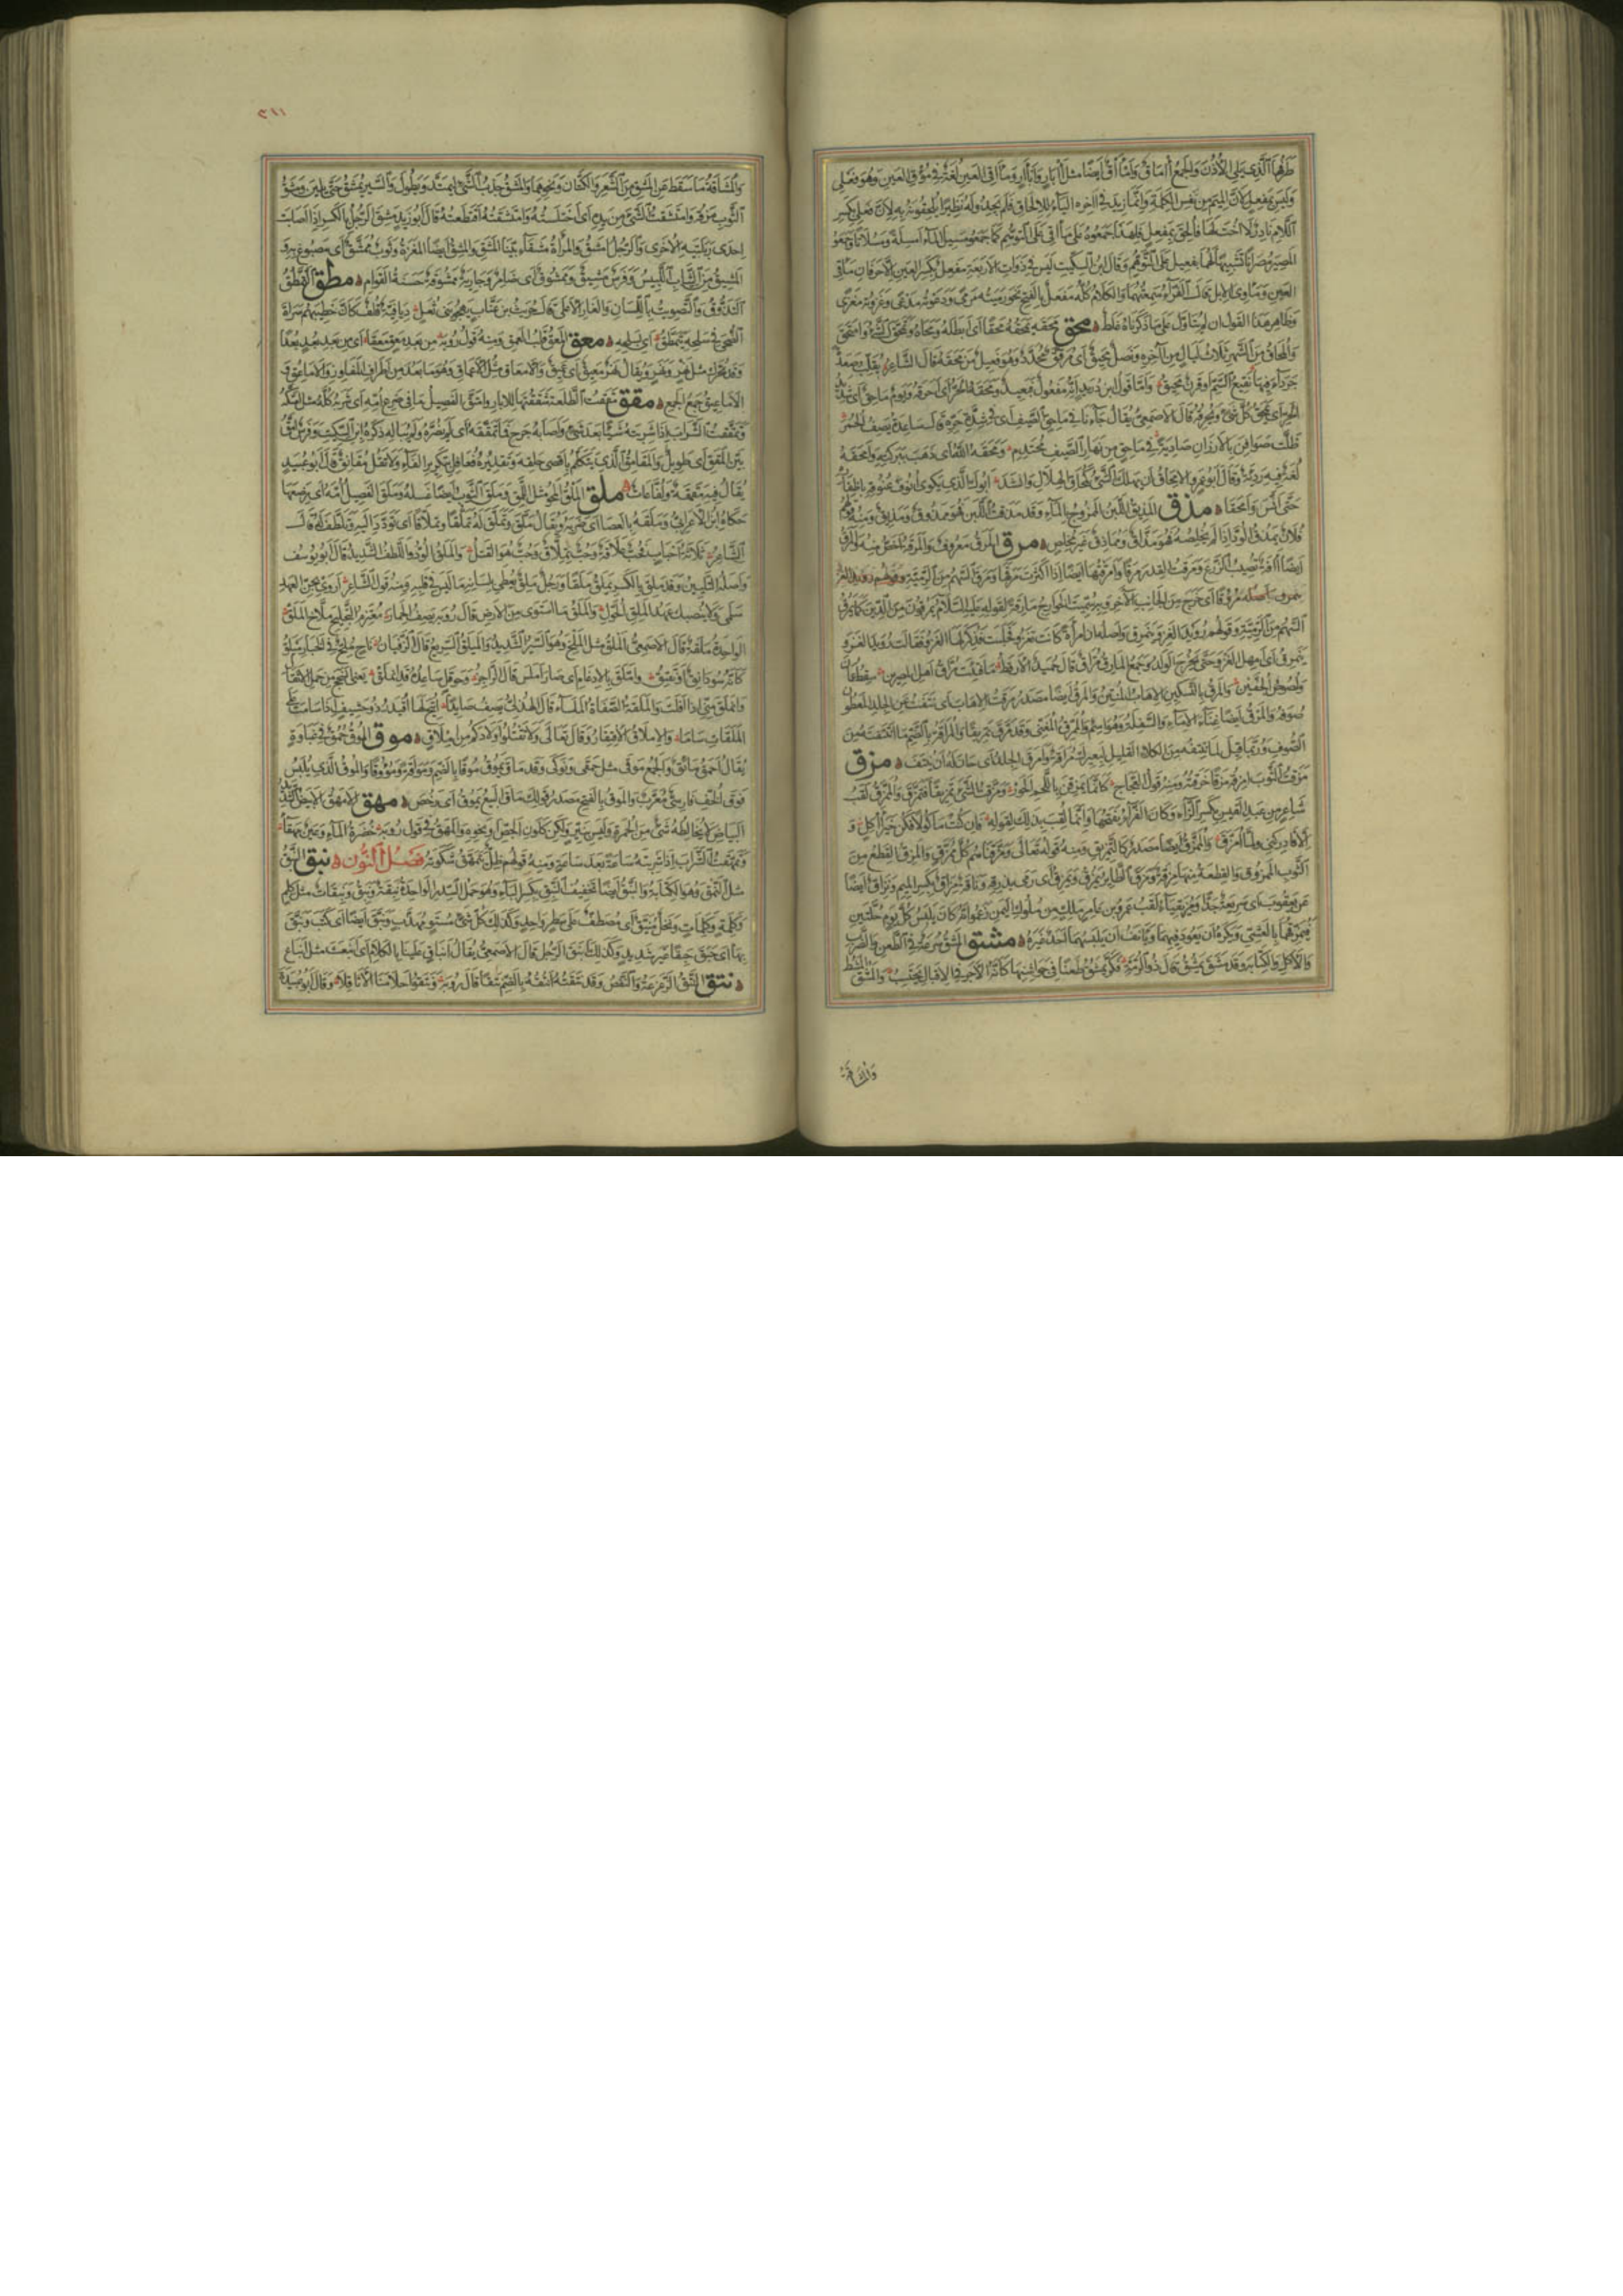 طرفها الذي يلي الأذن والجمع آماق وأمآق أيضا مثل آبار وأبآر ومأقي العين لغة في مؤق العين وهو فعلي
وليس بمفعل لان الميم من نفس الكلمة وانما زيد في اخره الياء للالحاق فلم يجدوا له نظيرا يلحقونه به لان فعلي بكسر
اللام نادر لا اخت لها فالحق بمفعل فلهذا جمعوه على مآقي على التوهم كما جمعوا مسيل الماء امسلة ومسلانا وجمعوا
المصير مصرانا تشبيها لهما بفعيل على التوهم وقال ابن السكيت ليس في ذوات الاربعة مفعل بكسر العين الا حرفان مأقي
العين ومأوي الابل قال الفراء سمعتهما والكلام كله مفعل بالفتح نحو رميته مرمى ودعوته مدعى وغزوته مغزى
وظاهر هذا القول ان لم يتأول على ما ذكرناه غلط محق محقه يمحقه محقا اى ابطله ومحاه وتمحق الشيء وامتحق
والمحاق من الشهر ثلاث ليال من آخره ونصل محيق اى مرقق محدد وهو فعيل من محقه قال الشاعر يقلب صعدة
جرداء فيها نقيع السم او قرن محيق واما قول ابن دريد انه مفعول فبعيد ومحقه الحر اى احرقه ويوم ماحق اى شديد
الحر اى يمحق كل شيء ويحرقه قال الاصمعي يقال جاءنا في ماحق الصيف اى في شدة حره قال ساعدة يصف الحمر
ظلت صوافن بالارزان صادية في ماحق من نهار الصيف محتدم ومحقه الله اى ذهب ببركته وامحقه
لغة فيه ردية وقال ابو عمرو الامحاق ان يهلك الشيء كمحاق الهلال وانشد ابوك الذي يكوي انوف عنوقه باظفاره
حتى انس وامحقا مذق المذيق اللبن الممزوج بالماء وقد مذقت اللبن فهو ممذوق ومذيق ومنه قولهم
فلان يمذق الود اذا لم يخلصه فهو مذاق ومماذق غير مخلص مرق المرق معروف والمرقة اخص منه والمرق
ايضا آفة تصيب الزرع ومرقت القدر مرقا وامرقتها ايضا اذا اكثرت مرقها ومرق السهم من الرمية
مروقا اى خرج من الجانب الآخر وبه سميت الخوارج مارقة لقوله عليه السلام يمرقون من الدين كما يمرق
السهم من الرمية وقولهم رويد الغزو ينمرق واصله ان امرأة كانت تغزو فحبلت فذكر لها الغزو فقالت رويد الغزو
ينمرق اى امهل الغزو حتى يخرج الولد وجمع المارق مراق قال حميد الارقط ما فتئت مراق اهل المصرين سقط عمان
ولصوص الجفين والمرق بالتسكين الاهاب المنتن والمرق ايضا مصدر مرقت الاهاب اى نتفت عن الجلد المعطون
صوفه والمرق ايضا غناء الاماء والسفلة وهو اسم والممرق المغني وقد مرق تمريقا والمراقة بالضم ما انتتفت من
الصوف وربما قيل لما تنتفه من الكلاء القليل لبعيرك مراقة وامرق الجلد اى حان له ان ينتف مزق
مزقت الثوب امزقه مزقا خرقته ومنه قول العجاج كانما يمزقن باللحم الحور ومزقت الشيء تمزيقا فتمزق والممزق لقب
شاعر من عبد القيس بكسر الزاء وكان الفراء يفتحها وانما لقب بذلك لقوله فان كنت ماكولا فكن خير آكل و
الا فادركني ولما امزق والممزق ايضا مصدر كالتمزيق ومنه قوله تعالى ومزقناهم كل ممزق والمزق القطع من
الثوب الممزوق والقطعة منها مزقة ومزق الطائر يمزق ويمزق اى رمى بذرقه وناقة مزاق بكسر الميم ونزاق ايضا
عن يعقوب اى سريعة جدا ومزيقياء لقب عمرو بن عامر ملك من ملوك اليمن زعموا انه كان يلبس كل يوم حلتين
فيمزقهما بالعشي ويكره ان يعود فيهما ويأنف ان يلبسهما احد غيره مشق المشق سرعة في الطعن والضرب
والاكل والكتابة وقد مشق يمشق قال ذو الرمة فكر يمشق طعنا في جواشنها كانه الاجر في الاقبال يحتسب والمشق المشط
والمشاقة
٣١١
والمشاقة ما سقط عن المشق من الشعر والكتان ونحوهما والمشق جذب الشيء ليمتد ويطول والسير يمشق حتى يلين ومشق
الثوب مزقه وامتشقت الشيء من يده اى اختلسته وامتشقته اقتطعته قال ابو زيد مشق الرجل بالكسر اذا اصابت
احدى ربلتيه الاخرى والرجل امشق والمرأة مشقاء بينا المشق والمشق ايضا المغرة وثوب ممشق اى مصبوغ به و
المشيق من الثياب اللبيس وفرس مشيق وممشوق اى ضامر وجارية ممشوقة حسنة القوام مطق التمطق
التذوق والتصويت باللسان والغار الاعلى قال حريث بن عتاب يهجو بني ثعل ديافية قلف كان خطيبهم سراة
الضحى في سلحه يتمطق اى بسلحه معق المعق قلب العمق ومنه قول رؤبة من بعد معق معقا اى من بعد بعد بعدا
وقد تحرك مثل نهر ونهر ويقال نهر معيق اى عميق والامعاق مثل الاعماق وهو ما بعد من اطراف المفاوز والاماعق و
الاماعيق جمع الجمع مقق مققت الطلعة شققتها للابار وامتق الفصيل ما في ضرع امه اى شربه كله مثل امتكه
وتمققت الشراب اذا شربته شيئا بعد شيء واصابه جرح فما تمققه اى لم يضره ولم يباله ذكره ابن السكيت وفرس امق
بين المقق اى طويل والمقامق الذي يتكلم باقصى حلقه وتقديره فعافل بتكرير الفاء ولا تقل مقانق قال ابو عبيد
يقال فيه مقمقة ولقاعات ملق الملق المحو مثل اللمق وملق الثوب ايضا غسله وملق الفصيل امه اى يرضعها
حكاه ابن الاعرابي وملقه بالعصا اى ضربه ويقال ملق وتملق له تملقا وتملاقا اى تودد اليه وتلطف له قال
الشاعر ثلاثة احباب فحب علاقة وحب تملاق وحب هو القتل والملق الود واللطف الشديد قال ابو يوسف
واصله التليين وقد ملق بالكسر يملق ملقا ورجل ملق يعطي بلسانه ما ليس في قلبه ومنه قول الشاعر اروى بجن العهد
سلمى ولا ينصبك عهد الملق الحول والملق ما استوى من الارض قال رؤبة يصف الحمار معتزم التجليح ملاخ الملق
الواحدة ملقة قال الاصمعي الملق مثل الملخ وهو السير الشديد والميلق السريع قال الزفيان ناج ملح في الخبار ميلق
كانه سوذانق او نقنق وانملق واملق بالادغام اى صار املس قال الراجز وحوقل ساعده قد انملق يعني انسحج من حمل الاثقال
وانملق مني اذا افلت والملقة الصفاة الملساء قال الهذلي يصف صايدا اتيح لها اقيدر ذو حشيف اذا سامت على
الملقات ساما والاملاق الافتقار وقال تعالى ولا تقتلوا اولادكم من املاق موق الموق حمق في غباوة
يقال احمق مائق والجمع موقى مثل حمقى ونوكى وقد ماق يموق موقا بالضم ومواقة ومؤوقا والموق الذي يلبس
فوق الخف فارسي معرب والموق بالفتح مصدر قولك ماق البيع يموق اى رخص مهق الامهق الابيض الشديد
البياض لا يخالطه شيء من الحمرة وليس بنير ولكن كلون الجص ونحوه والمهق في قول رؤبة خضرة الماء وعين مهقاء
وتمهقت الشراب اذا شربته ساعة بعد ساعة ومنه قولهم ظل يتمهق شكوته فصل النون نبق النبق
مثل النمق وهو الكتابة والنبق ايضا تخفيف النبق بكسر الباء وهو حمل السدر الواحدة نبقة ونبق ونبقات مثل كلم
وكلمة وكلمات ونخل منبق اى مصطف على سطر واحد وكذلك كل شيء مستو مهذب ونبق ايضا اى كتب ونبق
بها اى حبق حبقا غير شديد وكذلك انبق الرجل قال الاصمعي يقال انباق علينا بالكلام اى انبعث مثل انباع
نتق النتق الزعزعة والنفض وقد نتقته انتقه بالضم نتقا قال رؤبة ونتقوا احلامنا الاثاقلا وقال ابو عبيدة